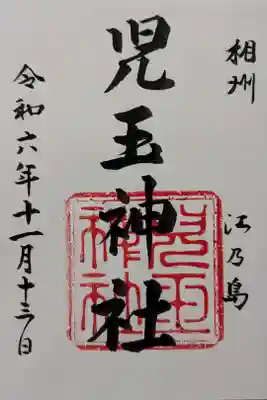 相州
江乃島
児玉神社
児玉神社
令和六年十一月十三日